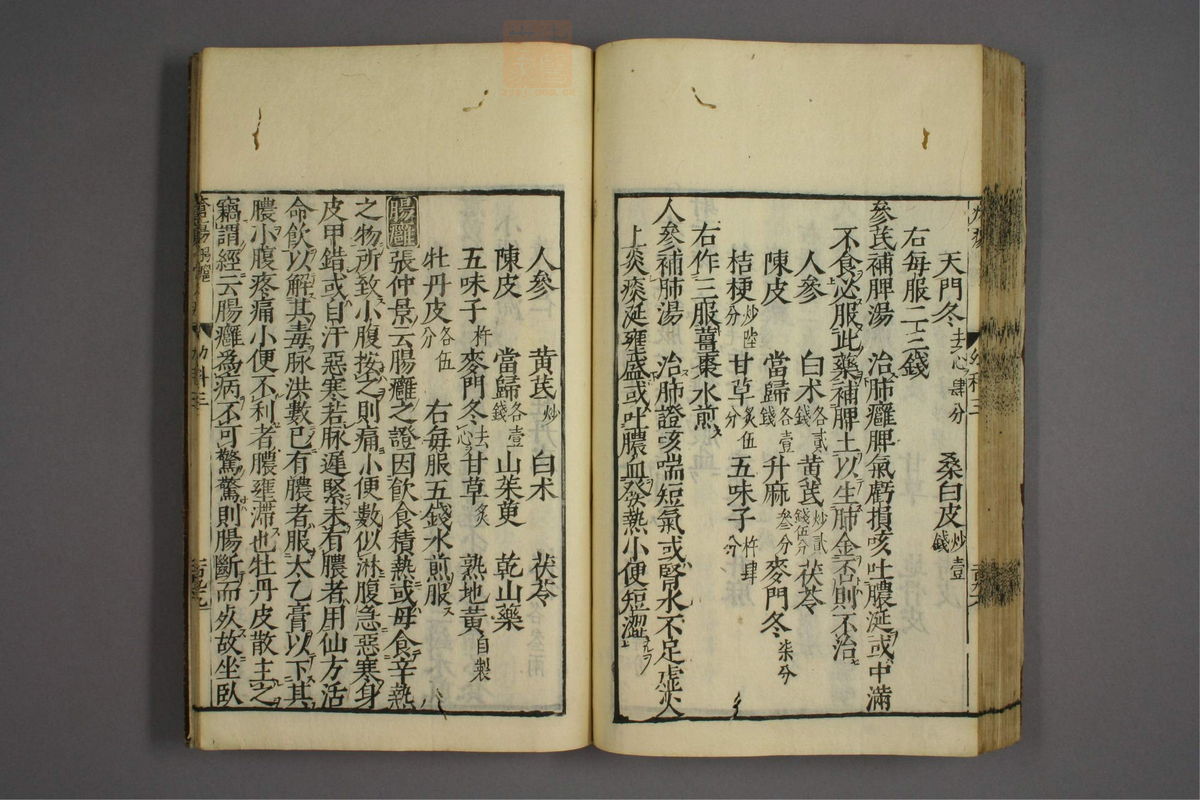 天門冬去心肆分　桑白皮炒壹錢
右每服二三錢
參芪補脾湯　治肺癰脾氣虧損咳吐膿涎或中滿
不食必服此藥補脾土以生肺金否則不治
人參　白术各貳錢　黃芪炒貳錢伍分　茯苓
陳皮　當歸各壹錢　升麻叄分　麥門冬柒分
桔梗炒陸分　甘草炙伍分　五味子杵肆分
右作三服薑棗水煎
人參補肺湯　治肺證咳喘短氣或腎水不足虛火
上炎痰涎壅盛或吐膿血發熱小便短澀
人參　黃芪炒　白术　茯苓
陳皮　當歸各壹錢　山茱萸　乾山藥
五味子杵　麥門冬去心　甘草炙　熟地黃自製
牡丹皮各伍分　右每服五錢水煎服
腸癰　張仲景云腸癰之證因飲食積熱或母食辛熱
之物所致小腹按之則痛小便數似淋腹急惡寒身
皮甲錯或自汗惡寒若脉遲緊未有膿者用仙方活
命飲以解其毒脉洪數已有膿者服大乙膏以下其
膿小腹疼痛小便不利者膿壅滯也牡丹皮散主之
竊謂經云腸癰為病不可驚驚則腸斷而死故坐臥